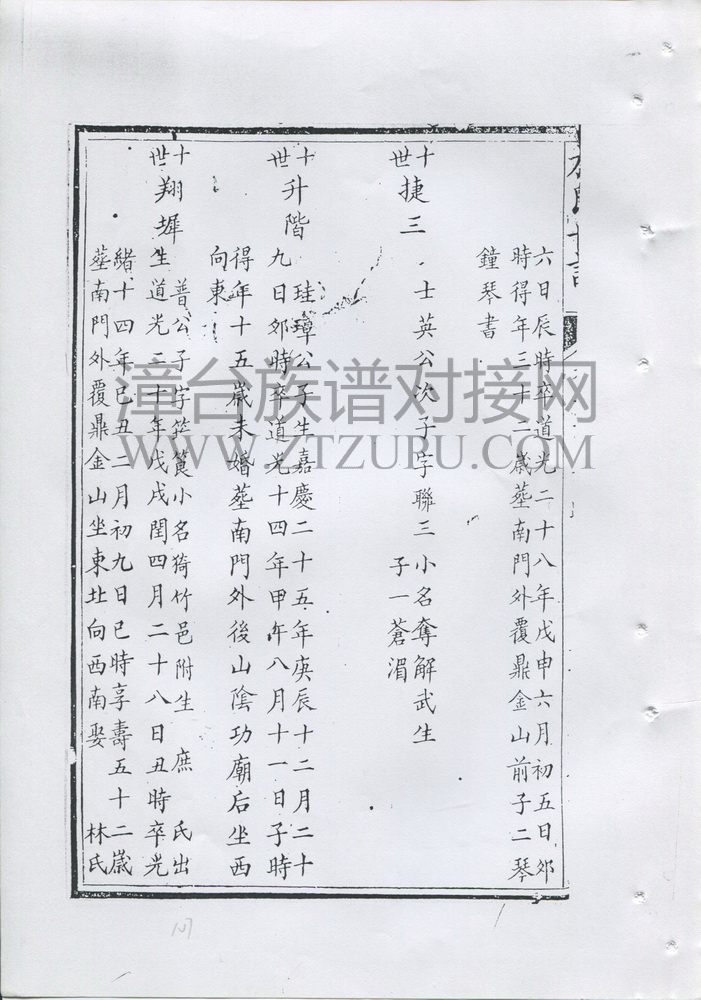 六日辰時卒道光二十八年戊申六月初五日郊
時得年三十二歲葬南門外覆鼎金山前子二琴
鐘琴書
十世
捷三
士英公次子字聯三小名奪解武生
子一蒼湄
十世
升階
珪璋公子生嘉慶二十五年庚辰十二月二十
九日郊時卒道光十四年甲午八月十一日子時
得年十五歲未婚葬南門外後山陰功廟后坐西
向東
十世
翔墀
普公子字竺簋小名猗竹邑附生 庶 氏出
生道光二十年戊戌閏四月二十八日丑時卒光
緒十四年已丑二月初九日巳時享壽五十二歲
葬南門外覆鼎金山坐東北向西南娶 林氏
漳台族谱对接网
WWW.ZTZUPU.COM